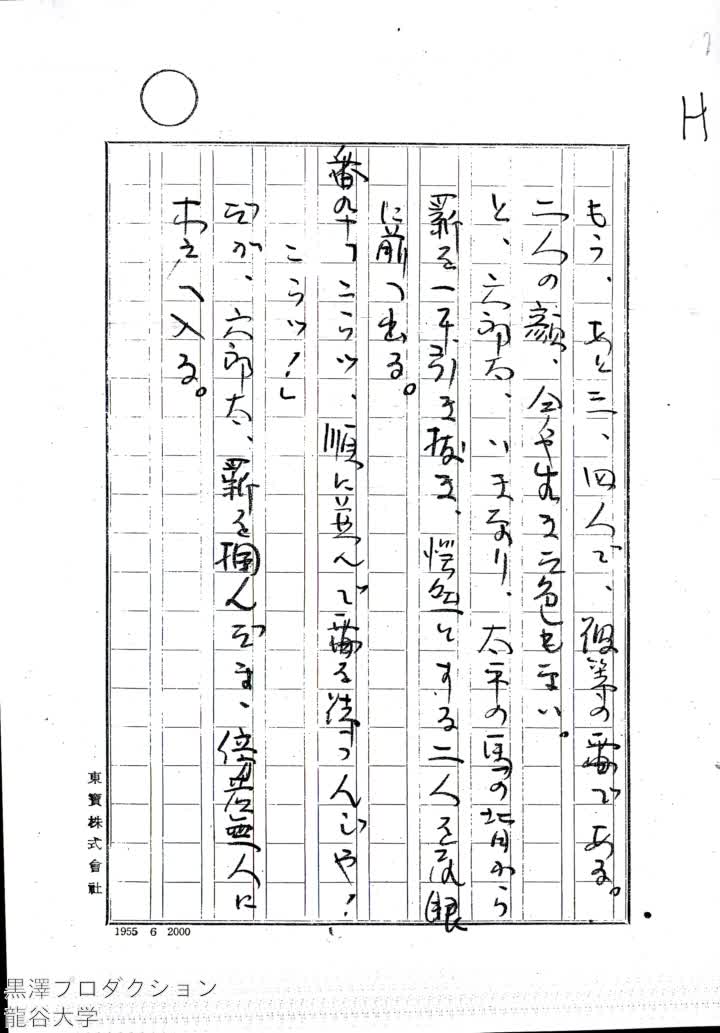 H
もう、あと三、四人で、彼等の番である。
二人の顔、今や生きた色もない。
と、六郎太、いきなり、太平の馬の背から
薪を一本引き抜き、愕然とする二人を尻眼
に前へ出る。
番卒「こらッ、順に並んで番を待つんじゃ！
こらッ！」
だが、六郎太、薪を掴んだまま、傍若無人に
木戸へ入る。
東寶株式會社
1955 6 2000
黒澤プロダクション
龍谷大学